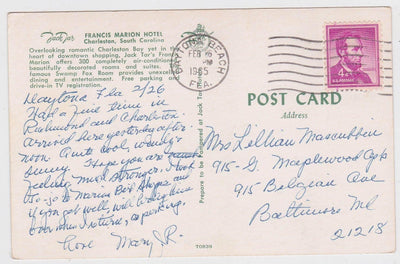 Jack Tar's
FRANCIS MARION HOTEL
Charleston, South Carolina
Overlooking romantic Charleston Bay yet in the
heart of downtown shopping, Jack Tar's Francis
Marion offers 300 completely air-conditioned
beautifully decorated rooms and suites.
famous Swamp Fox Room provides excellent
dining and entertainment. Free parking
drive-in TV registration.
DAYTONA BEACH
FEB 26
PM
1965
FLA.
4¢
U.S. POSTAGE
Daytona Fla 2/26
Had a fine time in
Richmond and Charleston.
Arrived here yesterday after-
noon. Quite cool, windy &
sunny. Hope you are
feeling much stronger.
to go to Marion
if you get well, will
over when I return,
Love Mary J.R.
Prepare to be Pampered at Jack Tar
POST CARD
Address
Mrs Lillian
915-G Maplewood Apts
915 Belgian Ave
Baltimore Md
21218
70839